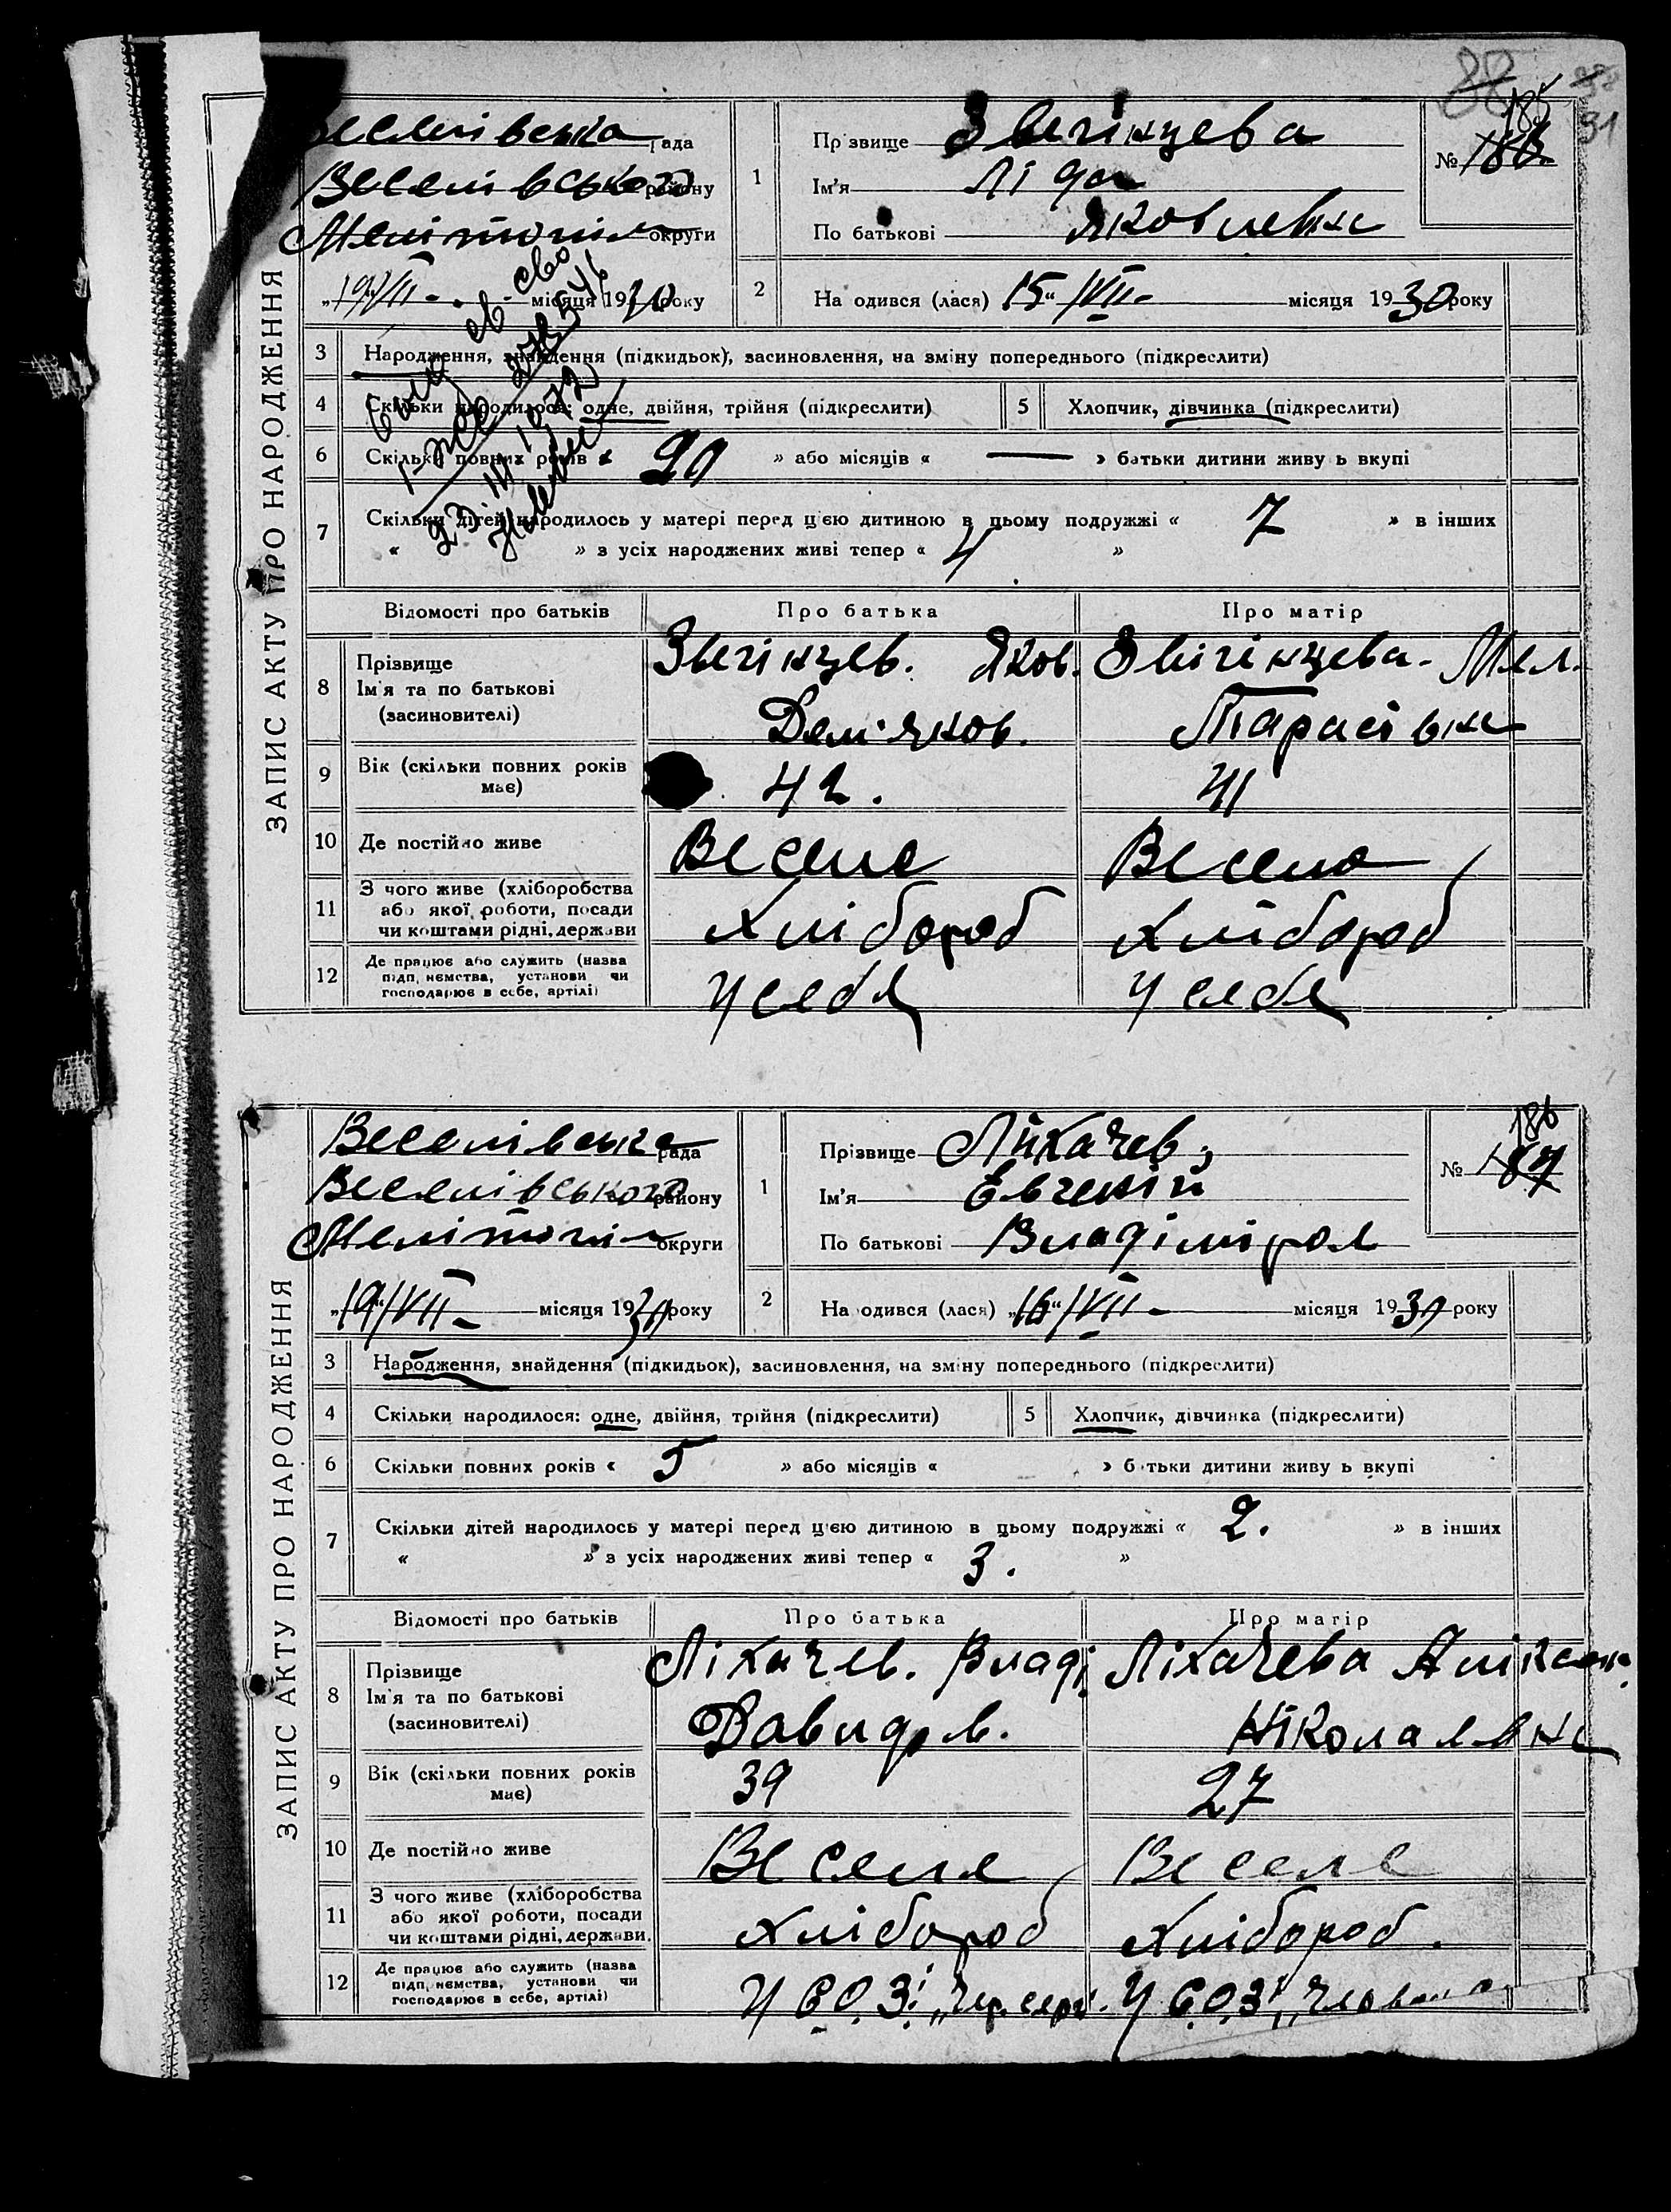 88
91
ЗАПИС АКТУ ПРО НАРОДЖЕННЯ
Веселівська рада
Веселівського району
Мелітопіль округи
„19“/VII - місяця 1930 року
1
Прізвище Звегінцева
Ім'я Ліда
По батькові Яковлевна
№ 185
2
Народився (лася) 15“/VII- місяця 1930 року
3 Народження, знайдення (підкидьок), засиновлення, на зміну попереднього (підкреслити)
4 Скільки народилося: одне, двійня, трійня (підкреслити)
5 Хлопчик, дівчинка (підкреслити)
6 Скільки повних років « 20 » або місяців « — » батьки дитини живуть вкупі
7 Скільки дітей народилось у матері перед цією дитиною в цьому подружжі « 7 » в інших
« » з усіх народжених живі тепер « 4 »
23 III 1972
Відомості про батьків Про батька Про матір
8
Прізвище
Ім'я та по батькові
(засновителі)
Звегінцев. Яков.
Дем'яков.
Звігінцева. Мел.
Тарасівна
9 Вік (скільки повних років має) 42. 41
10 Де постійно живе Веселе Веселе
11
З чого живе (хліборобства
або якої роботи, посади
чи коштами рідні, держави
Хлібороб Хлібороб
12
Де працює або служить (назва
підприємства, установи чи
господарює в себе, артілі)
У себя У себя
ЗАПИС АКТУ ПРО НАРОДЖЕННЯ
Веселівська рада
Веселівського району
Мелітопіль округи
„19“/VII - місяця 1930 року
1
Прізвище Лихачев,
Ім'я Евгений
По батькові Владіміров
№ 186
2
Народився (лася) „16“/VII - місяця 1930 року
3 Народження, знайдення (підкидьок), засиновлення, на зміну попереднього (підкреслити)
4 Скільки народилося: одне, двійня, трійня (підкреслити)
5 Хлопчик, дівчинка (підкреслити)
6 Скільки повних років « 5 » або місяців « » батьки дитини живуть вкупі
7 Скільки дітей народилось у матері перед цією дитиною в цьому подружжі « 2. » в інших
« » з усіх народжених живі тепер « 3. »
Відомості про батьків Про батька Про матір
8
Прізвище
Ім'я та по батькові
(засиновителі)
Ліхачев. Владі.
Давидов.
Ліхачева Алексан.
Ніколаевна
9 Вік (скільки повних років має) 39 27
10 Де постійно живе Веселе Веселе
11
З чого живе (хліборобства
або якої роботи, посади
чи коштами рідні, держави.
Хлібороб Хлібороб.
12
Де працює або служить (назва
підприємства, установи чи
господарює в себе, артілі)
У СОЗі „Чер. серп. У СОЗі